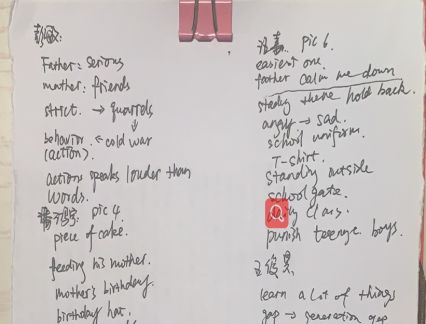 Father: serious
mother: friends
strict. → quarrels
behavior. ← cold war
(action).
actions speaks louder than
words.
pic 4.
piece of cake.
feeding his mother.
mother's birthday.
birthday hat.
pic 6.
easiest one.
father calm me down
hold back.
angry → sad.
school uniform.
T-shirt.
standing outside
school gate.
class.
punish teenage boys.
learn a lot of things
gap → generation gap